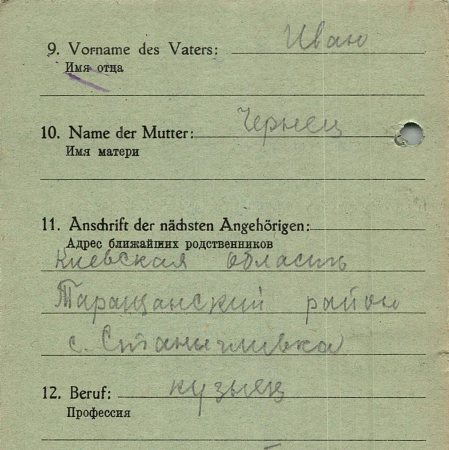 9. Vorname des Vaters: Иван
Имя отца
10. Name der Mutter: Чернец
Имя матери
11. Anschrift der nächsten Angehörigen:
Адрес ближайших родственников
Киевская область
Таращанский район
с. Станишивка
12. Beruf: кузнец
Профессия